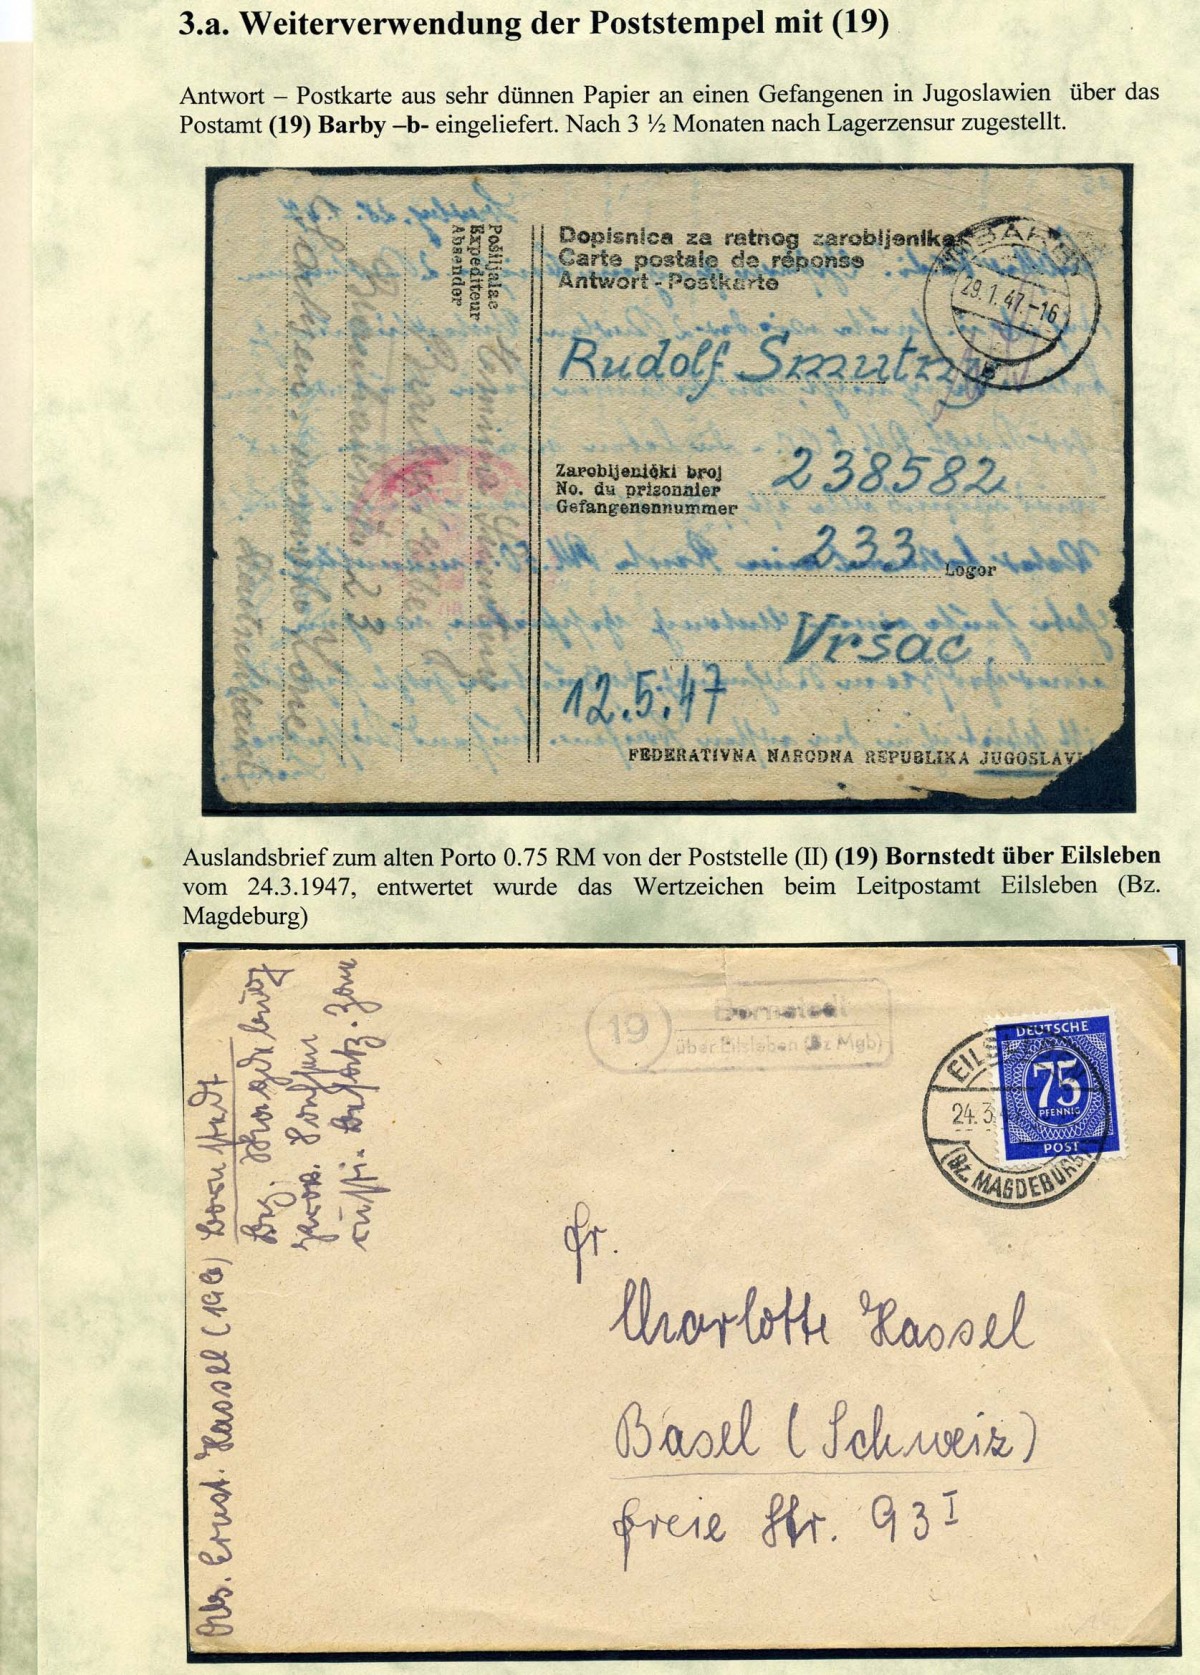 3.a. Weiterverwendung der Poststempel mit (19)
Antwort – Postkarte aus sehr dünnen Papier an einen Gefangenen in Jugoslawien über das
Postamt (19) Barby –b- eingeliefert. Nach 3 ½ Monaten nach Lagerzensur zugestellt.
Pošiljalac
Expediteur
Absender
Hermina
Sachsen
Deutschland
Dopisnica za ratnog zarobljenika
Carte postale de réponse
Antwort - Postkarte
BARBY
29.1.47.-16
b
Rudolf Smutny
Zarobljenički broj
No. du prisonnier
Gefangenennummer
238582
233
Logor
Vršac
12.5.47
FEDERATIVNA NARODNA REPUBLIKA JUGOSLAVI
Auslandsbrief zum alten Porto 0.75 RM von der Poststelle (II) (19) Bornstedt über Eilsleben
vom 24.3.1947, entwertet wurde das Wertzeichen beim Leitpostamt Eilsleben (Bz.
Magdeburg)
Abs. Ernst. Hassel (19b) Bornstedt
Bez. Magdeburg
russi. Besatz. Zone
19
Bornstedt
über Eilsleben (Bz Mgb)
EILS
24.3.4
(Bz. MAGDEBURG)
DEUTSCHE
75
PFENNIG
POST
Fr.
Charlotte Hassel
Basel (Schweiz)
Freie Str. 93 I